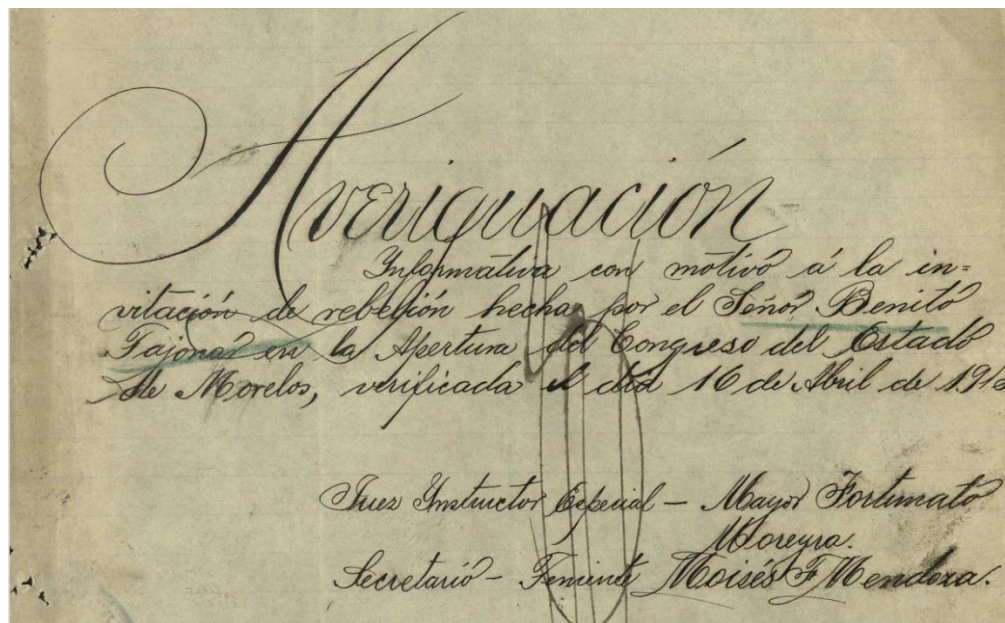 Averiguación
Informativa con motivo á la in=
vitación de rebelión hecha por el Señor Benito
Tajonar en la Apertura del Congreso del Estado
de Morelos, verificada el dia 16 de Abril de
Juez Instructor Especial — Mayor Fortunato
Moreyra.
Secretario — Teniente Moisés F Mendoza.